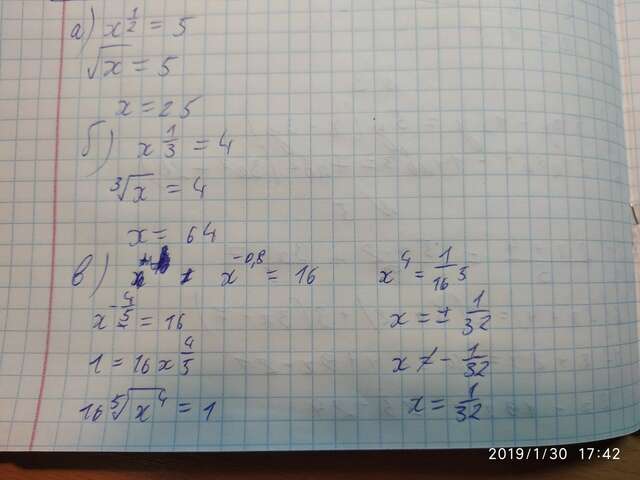 а) x^{\frac{1}{2}} = 5
\sqrt{x} = 5
x = 25
б) x^{\frac{1}{3}} = 4
\sqrt[3]{x} = 4
x = 64
в) x^{-0,8} = 16
x^{-\frac{4}{5}} = 16
1 = 16x^{\frac{4}{5}}
16\sqrt[5]{x^4} = 1
x^4 = \frac{1}{16^5}
x = ± \frac{1}{32}
x ≠ -\frac{1}{32}
x = \frac{1}{32}
2019/1/30 17:42